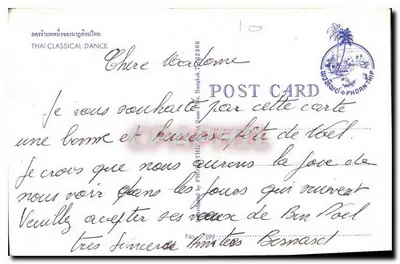 THAI CLASSICAL DANCE.
10
Chère Madame
POST CARD
PHORN THIP
Je vous souhaite par cette carte
une bonne et heureuse fête de Noël.
Je crois que nous aurons la joie de
nous voir dans les jours qui suivent
Veuillez accepter ses vœux de Bon Noël
très sincères Amitiés Bernard
No. 599